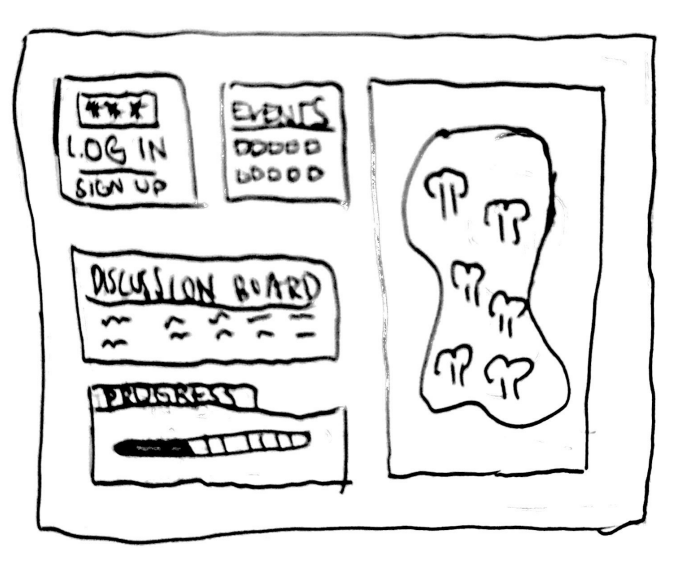 ***
LOG IN
SIGN UP
EVENTS
DISCUSSION BOARD
PROGRESS